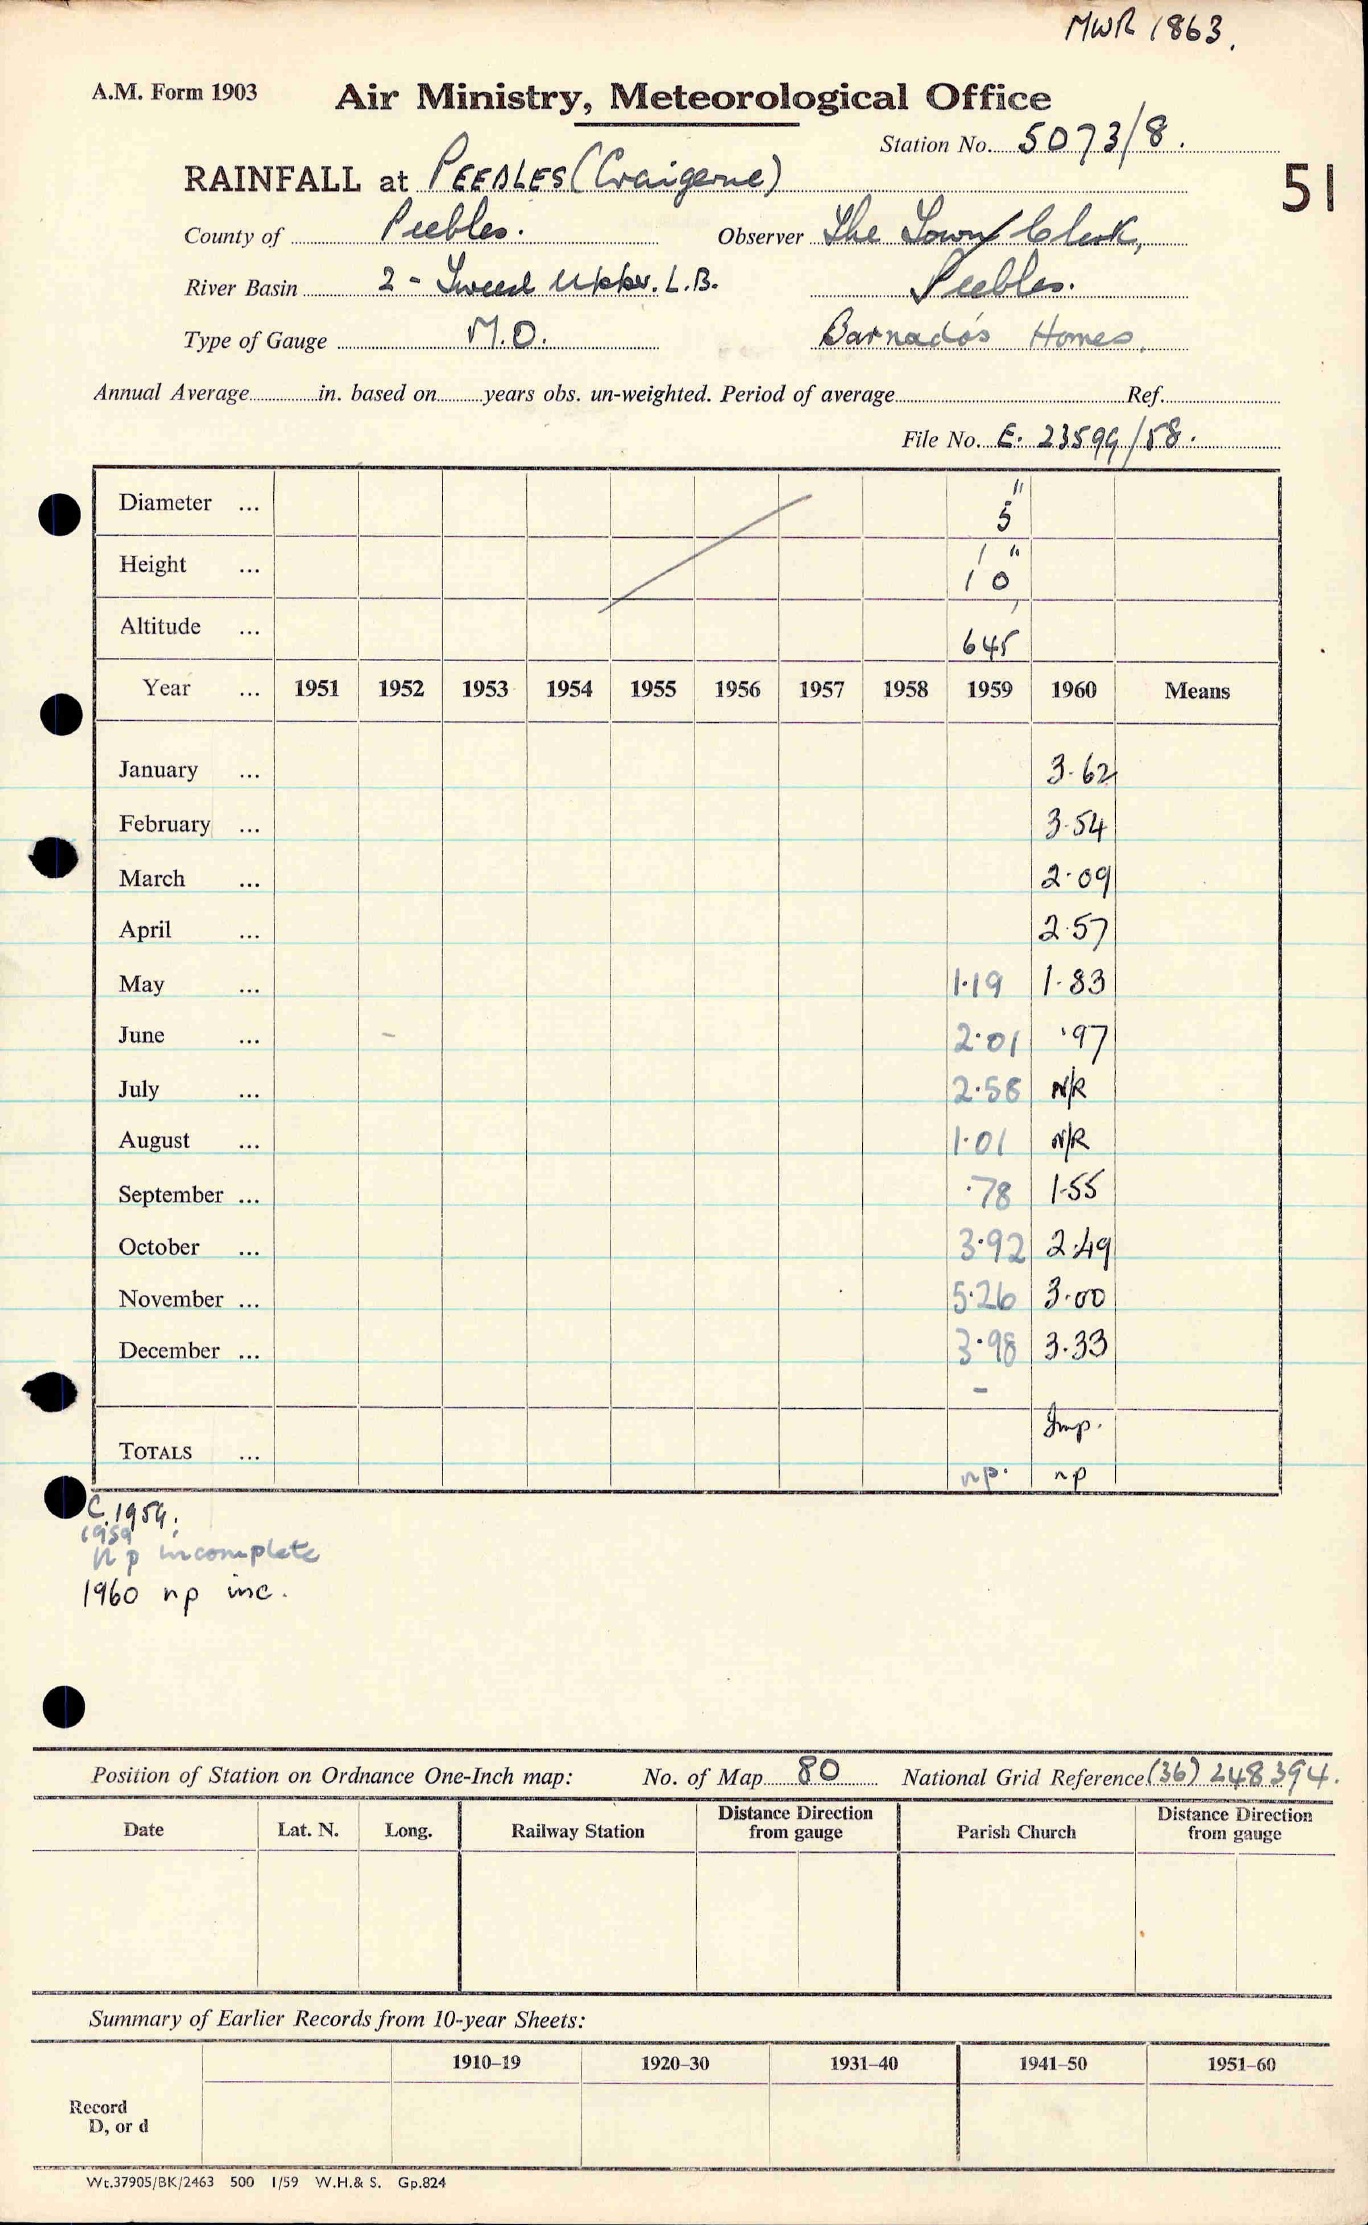 MWR 1863.
A.M. Form 1903
Air Ministry, Meteorological Office
Station No. 5073/8.
RAINFALL at PEEBLES (Craigerne)
51
County of Peebles. Observer The Town Clerk,
River Basin 2 - Tweed Upper. L.B. Peebles.
Type of Gauge M.O. Barnado's Homes.
Annual Average in. based on years obs. un-weighted. Period of average Ref.
File No. E. 23599/58.
Diameter ... 5"
Height ... 1' 0"
Altitude ... 645'
Year ... 1951 1952 1953 1954 1955 1956 1957 1958 1959 1960 Means
January ... 3.62
February ... 3.54
March ... 2.09
April ... 2.57
May ... 1.19 1.83
June ... 2.01 .97
July ... 2.58 N/R
August ... 1.01 N/R
September ... .78 1.55
October ... 3.92 2.49
November ... 5.26 3.00
December ... 3.98 3.33
-
Imp.
TOTALS ... np. np
C.1959.
1959
np incomplete
1960 np inc.
Position of Station on Ordnance One-Inch map: No. of Map 80 National Grid Reference (36) 248394.
Date Lat. N. Long. Railway Station Distance Direction from gauge Parish Church Distance Direction from gauge
Summary of Earlier Records from 10-year Sheets:
1910-19 1920-30 1931-40 1941-50 1951-60
Record
D, or d
Wt.37905/BK/2463 500 1/59 W.H.& S. Gp.824